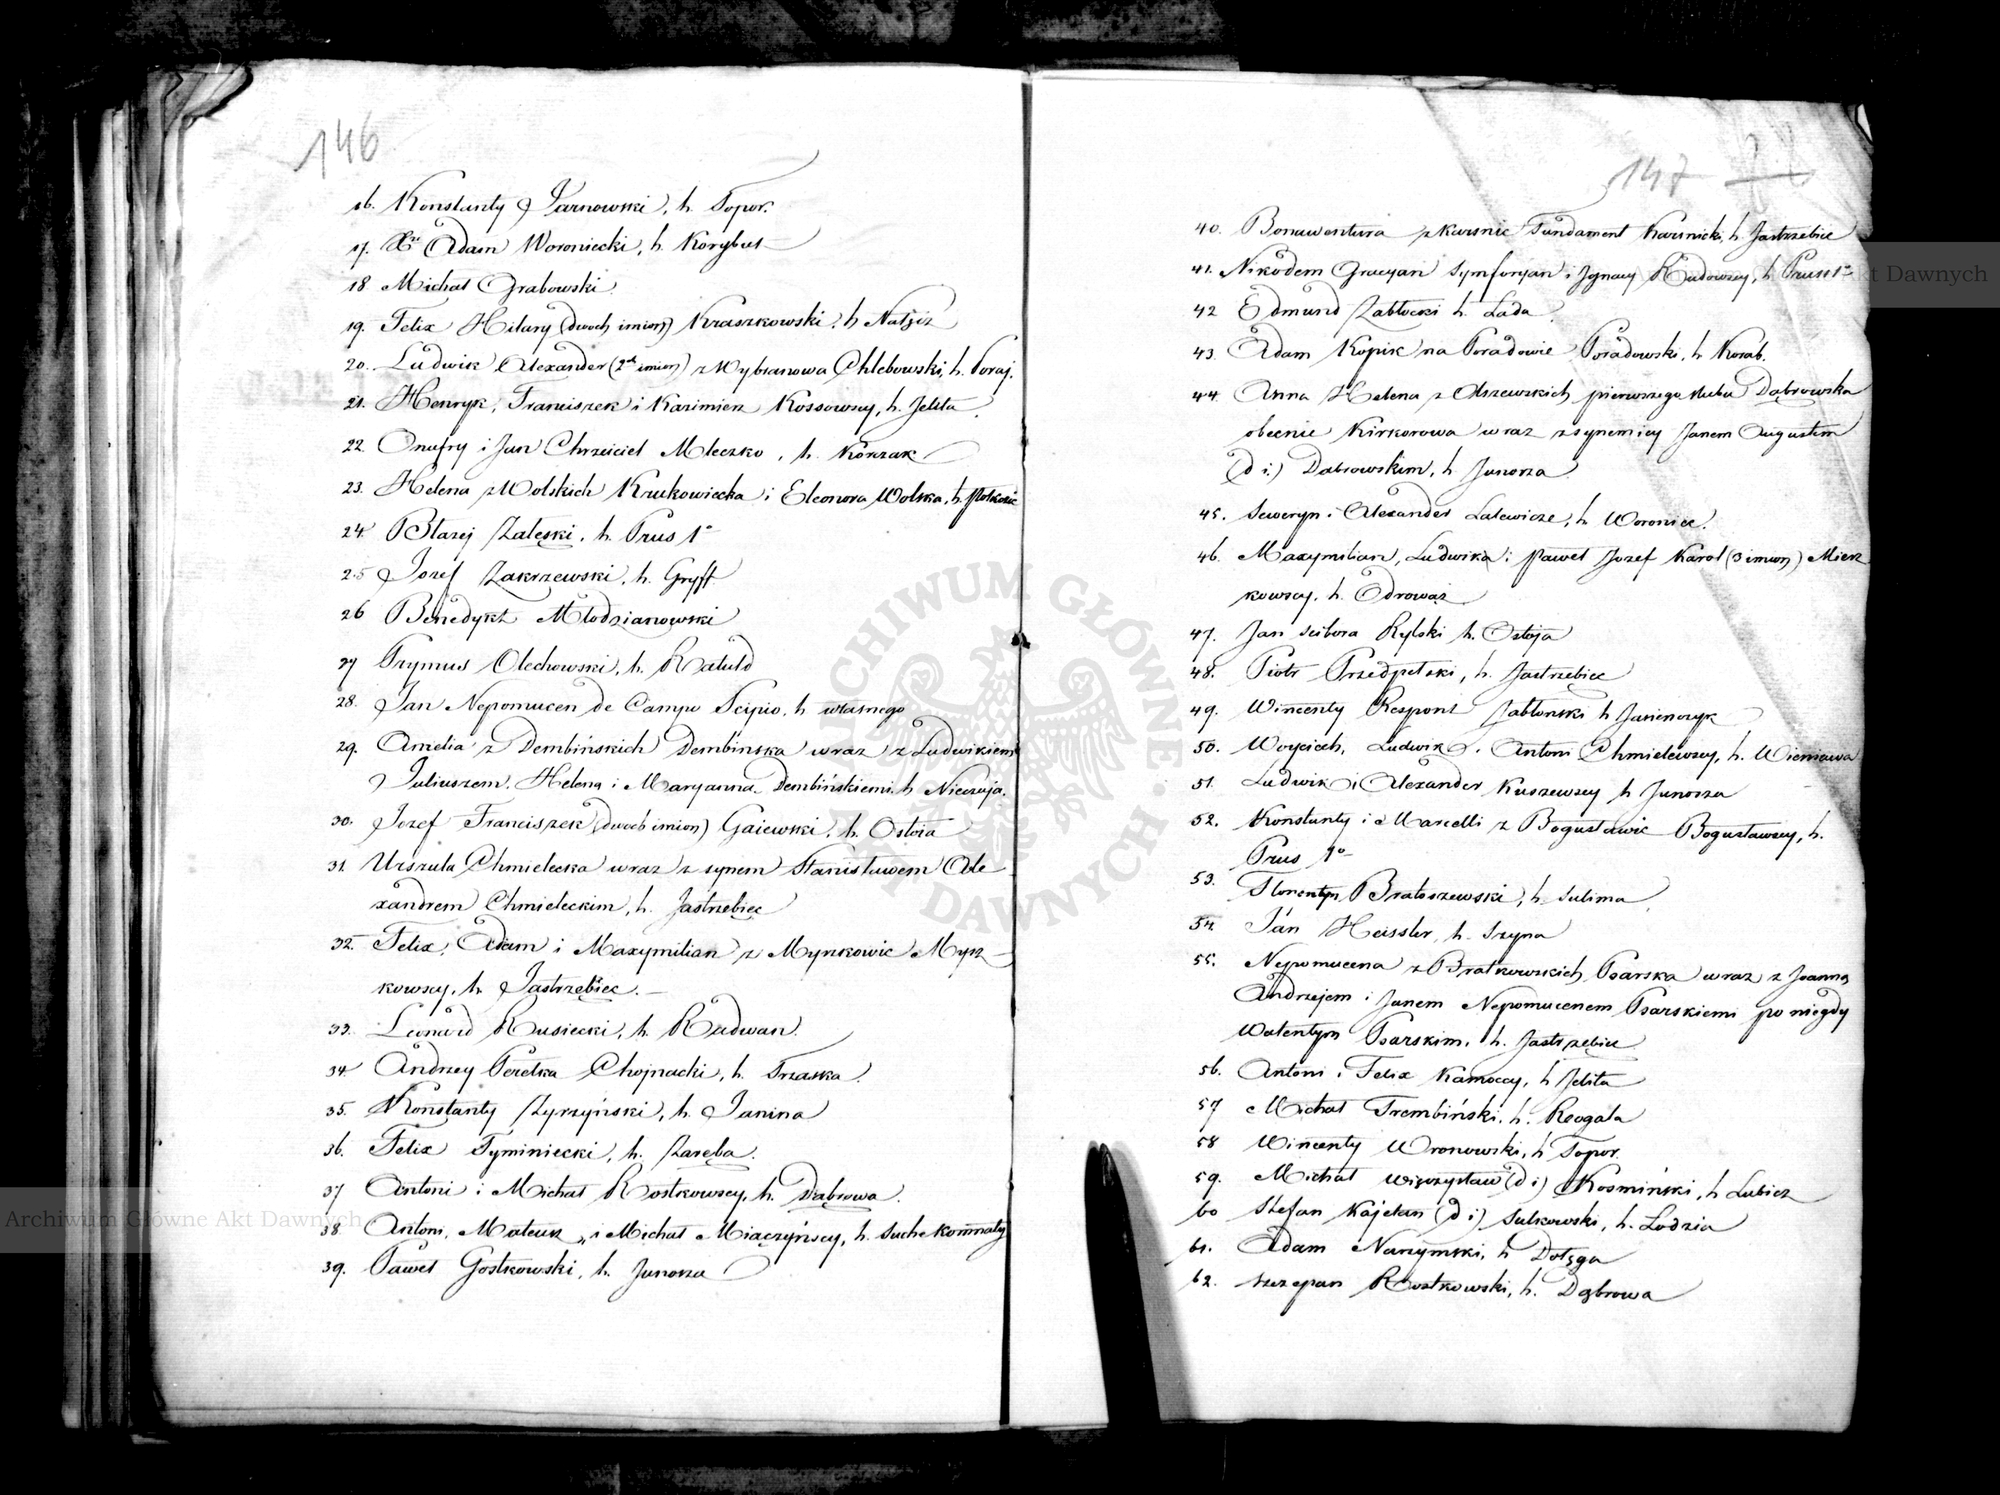 146
16. Konstanty Jarnowski, h. Topor.
17. Xże Adam Woroniecki, h. Korybut
18 Michał Grabowski.
19. Felix Hilary (dwoch imion) Kraszkowski, h. Nałęcz
20. Ludwik Alexander (2ch imion) z Wybranowa Chlebowski, h. Poraj.
21. Henryk, Franciszek i Kazimierz Kossowscy, h. Jelita.
22. Onufry i Jan Chrzciciel Mleczko, h. Korzak
23. Helena z Wolskich Krukowiecka i Eleonora Wolska, h. Półkozic
24. Błażej Zaleski, h. Prus 1o
25 Jozef Zakrzewski, h. Gryff
26 Benedykt Młodzianowski
27 Prymus Olechowski, h. Ratuld
28. Jan Nepomucen de Campo Scipio, h. własnego
29. Amelia z Dembińskich Dembińska wraz z Ludwikiem
Juliuszem, Heleną i Maryanną Dembińskiemi, h. Nieczuja.
30. Jozef Franciszek (dwoch imion) Gaiewski, h. Ostoia
31. Urszula Chmielecka wraz z synem Stanisławem Ale-
xandrem Chmieleckim, h. Jastrzębiec
32. Felix, Adam i Maxymilian z Myszkowic Mysz-
kowscy, h. Jastrzębiec.
33. Leonard Rusiecki, h. Radwan.
34. Andrzey Peretka Chojnacki, h. Trzaska.
35. Konstanty Zyrzyński, h. Janina
36. Felix Tyminiecki, h. Zaręba.
37 Antoni i Michał Rostkowscy, h. Dąbrowa.
38. Antoni, Mateusz, i Michał Miączyńscy, h. Suchekomnaty
39. Paweł Gostkowski, h. Junosza
147
40. Bonawentura z Karsnic Fundament Karśnicki, h. Jastrzębiec
41. Nikodem Gracyan Symforyan i Ignacy Rudowscy, h. Prus 1o
42 Edmund Zabłocki h. Łada
43. Adam Kopik na Poradowie Poradowski, h. Korab.
44. Anna Helena z Olszewskich pierwszego ślubu Dąbrowska
obecnie Kirkorowa wraz z synem icy Janem Augustem
(d i.) Dąbrowskim, h. Junosza
45. Seweryn i Alexander Lalewicze, h. Woroniec.
46. Maxymilian, Ludwika i Paweł Jozef Karol (3 imion) Miesz-
kowscy, h. Odrowąż
47. Jan Scibora Rylski h. Ostoja
48. Piotr Przedpełski, h. Jastrzębiec
49. Wincenty Respont Jabłonski h Jasieńczyk
50. Woyciech, Ludwik i Antoni Chmielewscy, h. Wieniawa
51. Ludwik i Alexander Kuszewscy h Junosza
52. Konstanty i Marcelli z Bogusławic Bogusławscy, h.
Prus 1o
53. Florentyn Bratoszewski, h. Sulima
54. Jan Heissler, h. Szyna
55. Nepomucena z Bratkowskich Psarska wraz z Joanną
Andrzejem i Janem Nepomucenem Psarskiemi po niegdy
Walentym Psarskim, h. Jastrzębiec
56. Antoni i Felix Kamoccy, h Jelita
57 Michał Trembiński, h. Rogala
58 Wincenty Wronowski, h Topor.
59. Michał Więczysław (d i) Kosmiński, h Lubicz
60 Stefan Kajetan (d i) Sulkowski, h. Łodzia
61. Adam Narzymski, h Dołęga
62. Szczepan Rostkowski, h. Dąbrowa
ARCHIWUM GŁÓWNE AKT DAWNYCH
Archiwum Główne Akt Dawnych
Akt Dawnych